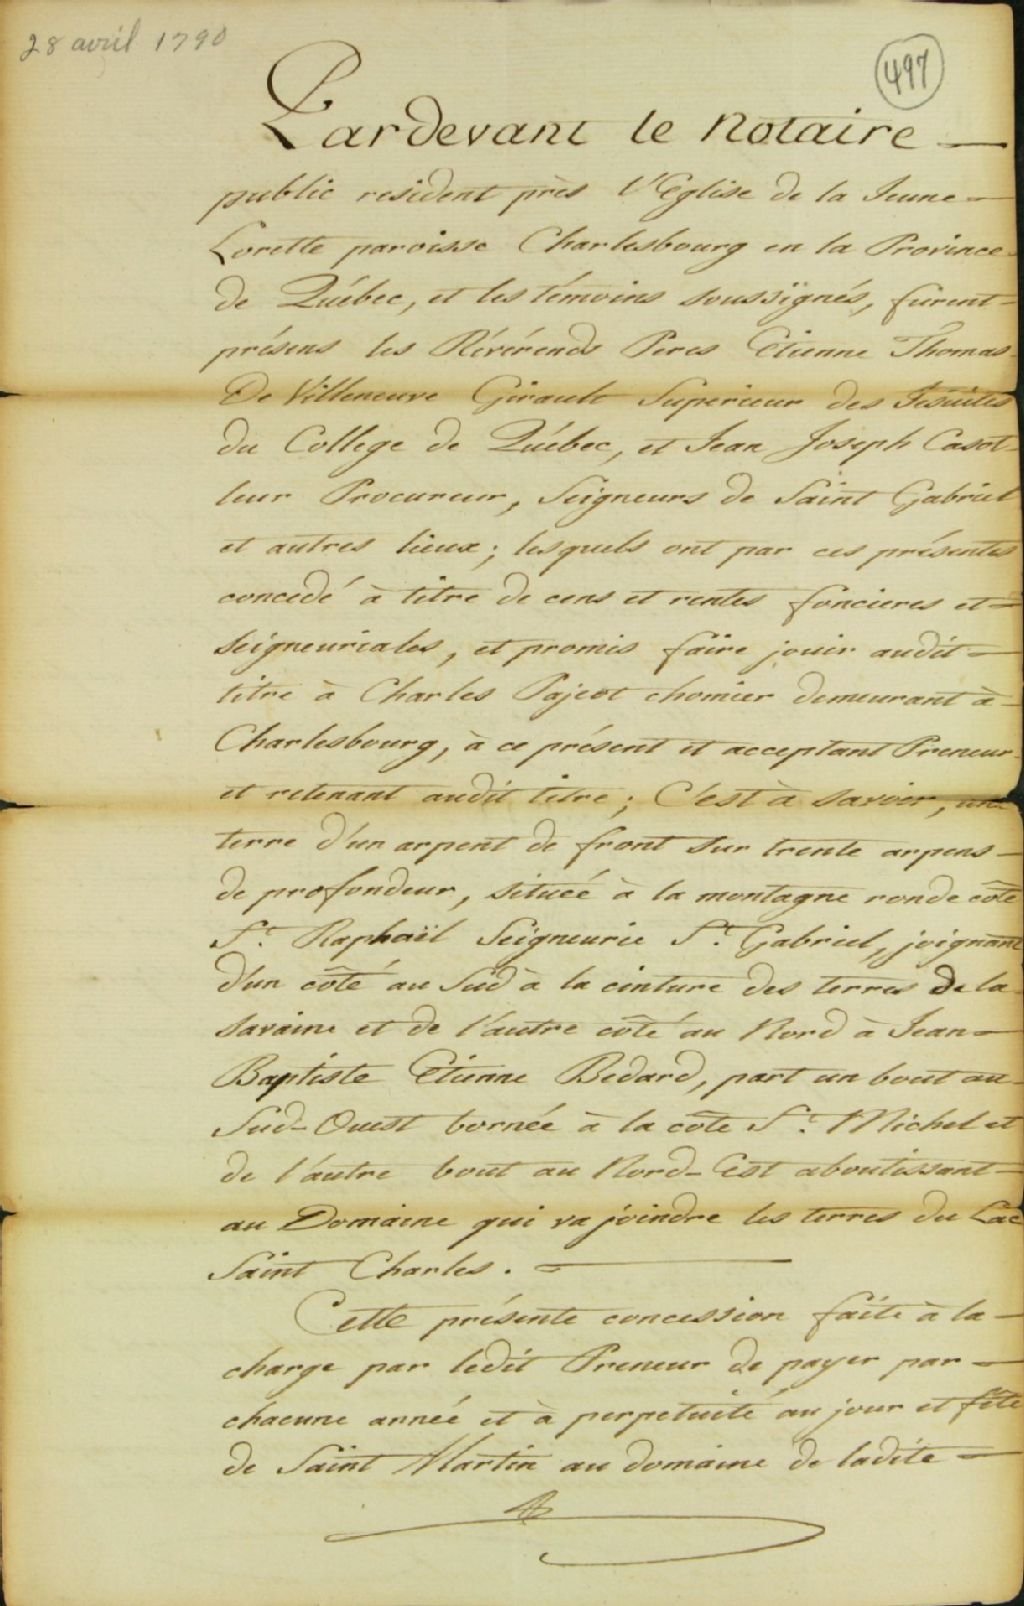 28 avril 1790
497
Pardevant le Notaire
public resident près l'Eglise de la Jeune
Lorette paroisse Charlesbourg en la Province
de Québec, et les témoins soussignés, furent
présens les Révérends Peres Etienne Thomas
De Villeneuve Girault Superieur des Jesuites
du College de Québec, et Jean Joseph Casot
leur Procureur, Seigneurs de Saint Gabriel
et autres lieux; lesquels ont par ces présentes
concedé à titre de cens et rentes foncieres et
seigneuriales, et promis faire jouir audit
titre à Charles Pajeot chomier demeurant à
Charlesbourg, à ce présent et acceptant Preneur
et retenant audit titre; C'est à savoir, une
terre d'un arpent de front sur trente arpens
de profondeur, situeé à la montagne ronde côte
St. Raphaël Seigneurie St. Gabriel, joignant
d'un côté au Sud à la cinture des terres de la
savaine et de l'autre côté au Nord à Jean
Baptiste Etienne Bedard, part un bout au
Sud-Ouest bornée à la côte St. Michel et
de l'autre bout au Nord-Est aboutissant
au Domaine qui va joindre les terres du Lac
Saint Charles.
Cette présente concession faite à la
charge par ledit Preneur de payer par
chacune année et à perpetuité au jour et fête
de Saint Martin au domaine de ladite